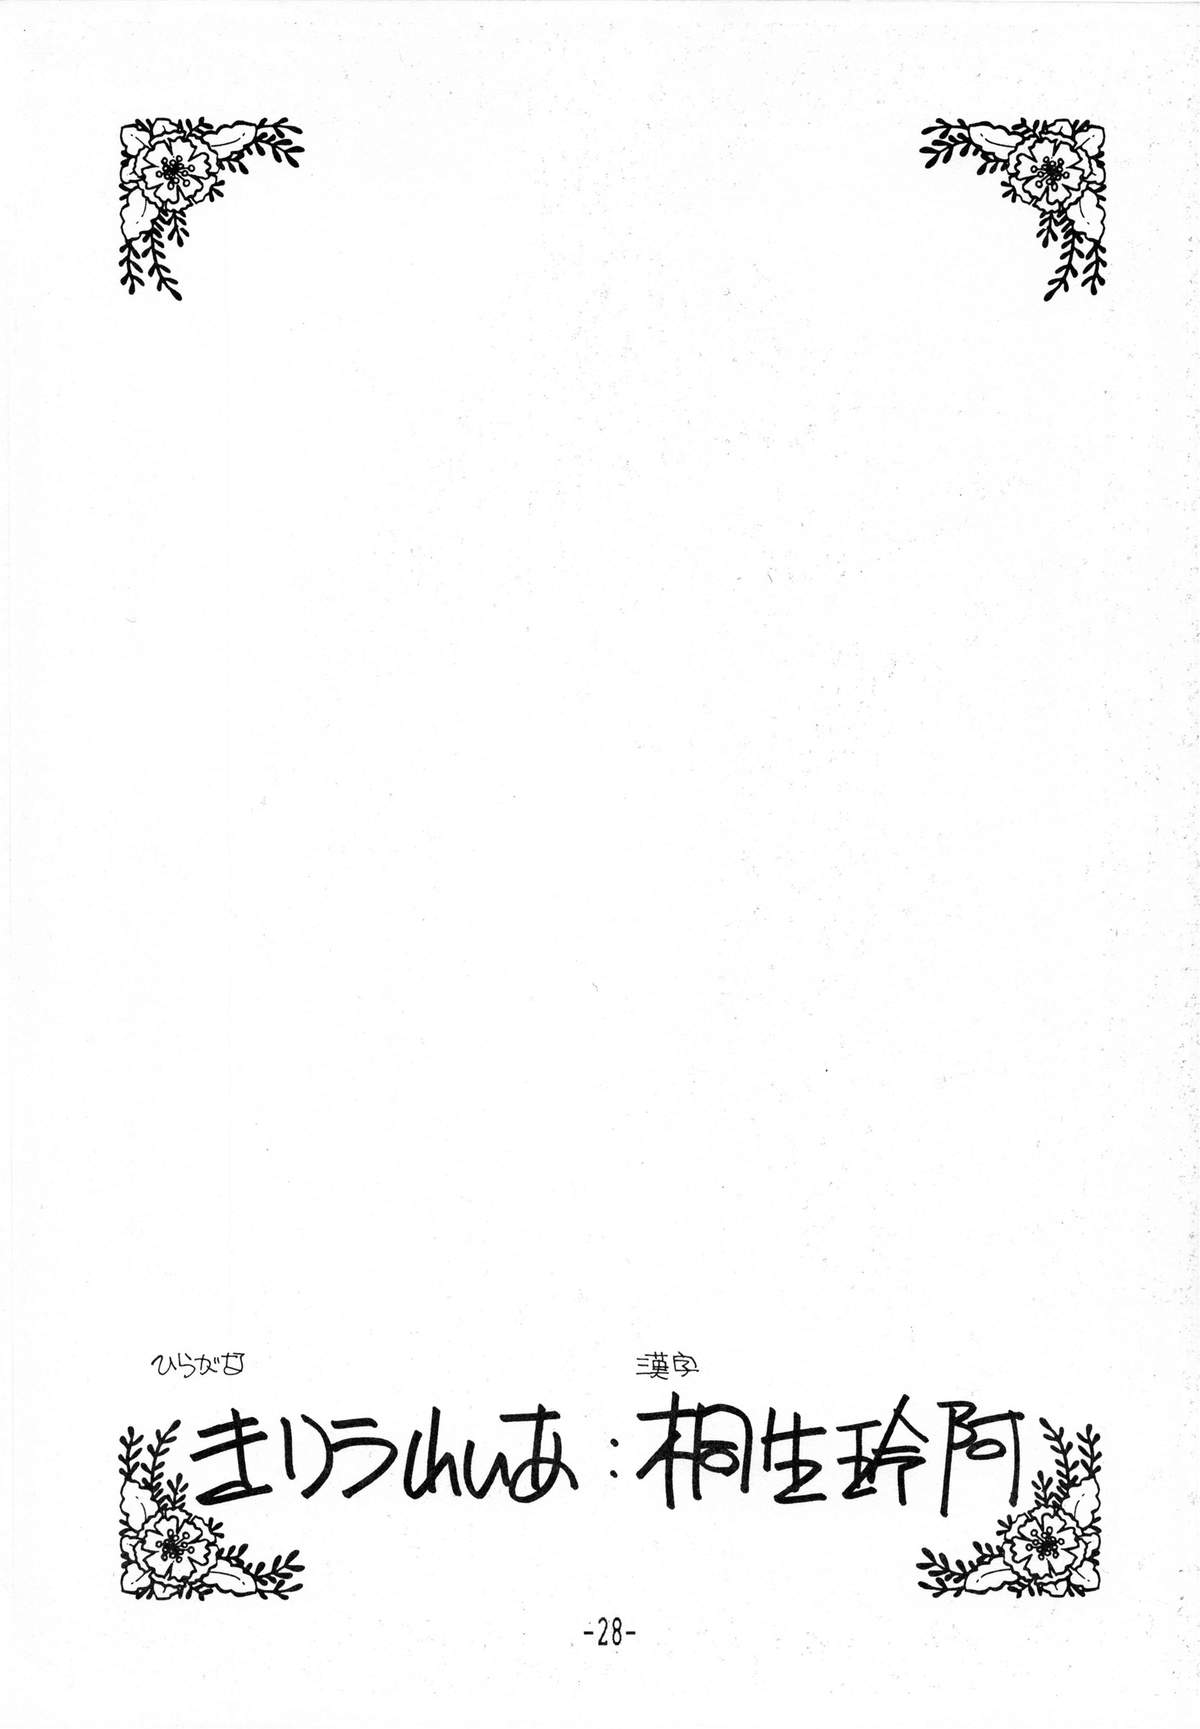 ひらがな 漢字
きりうれいあ:桐生玲阿
-28-